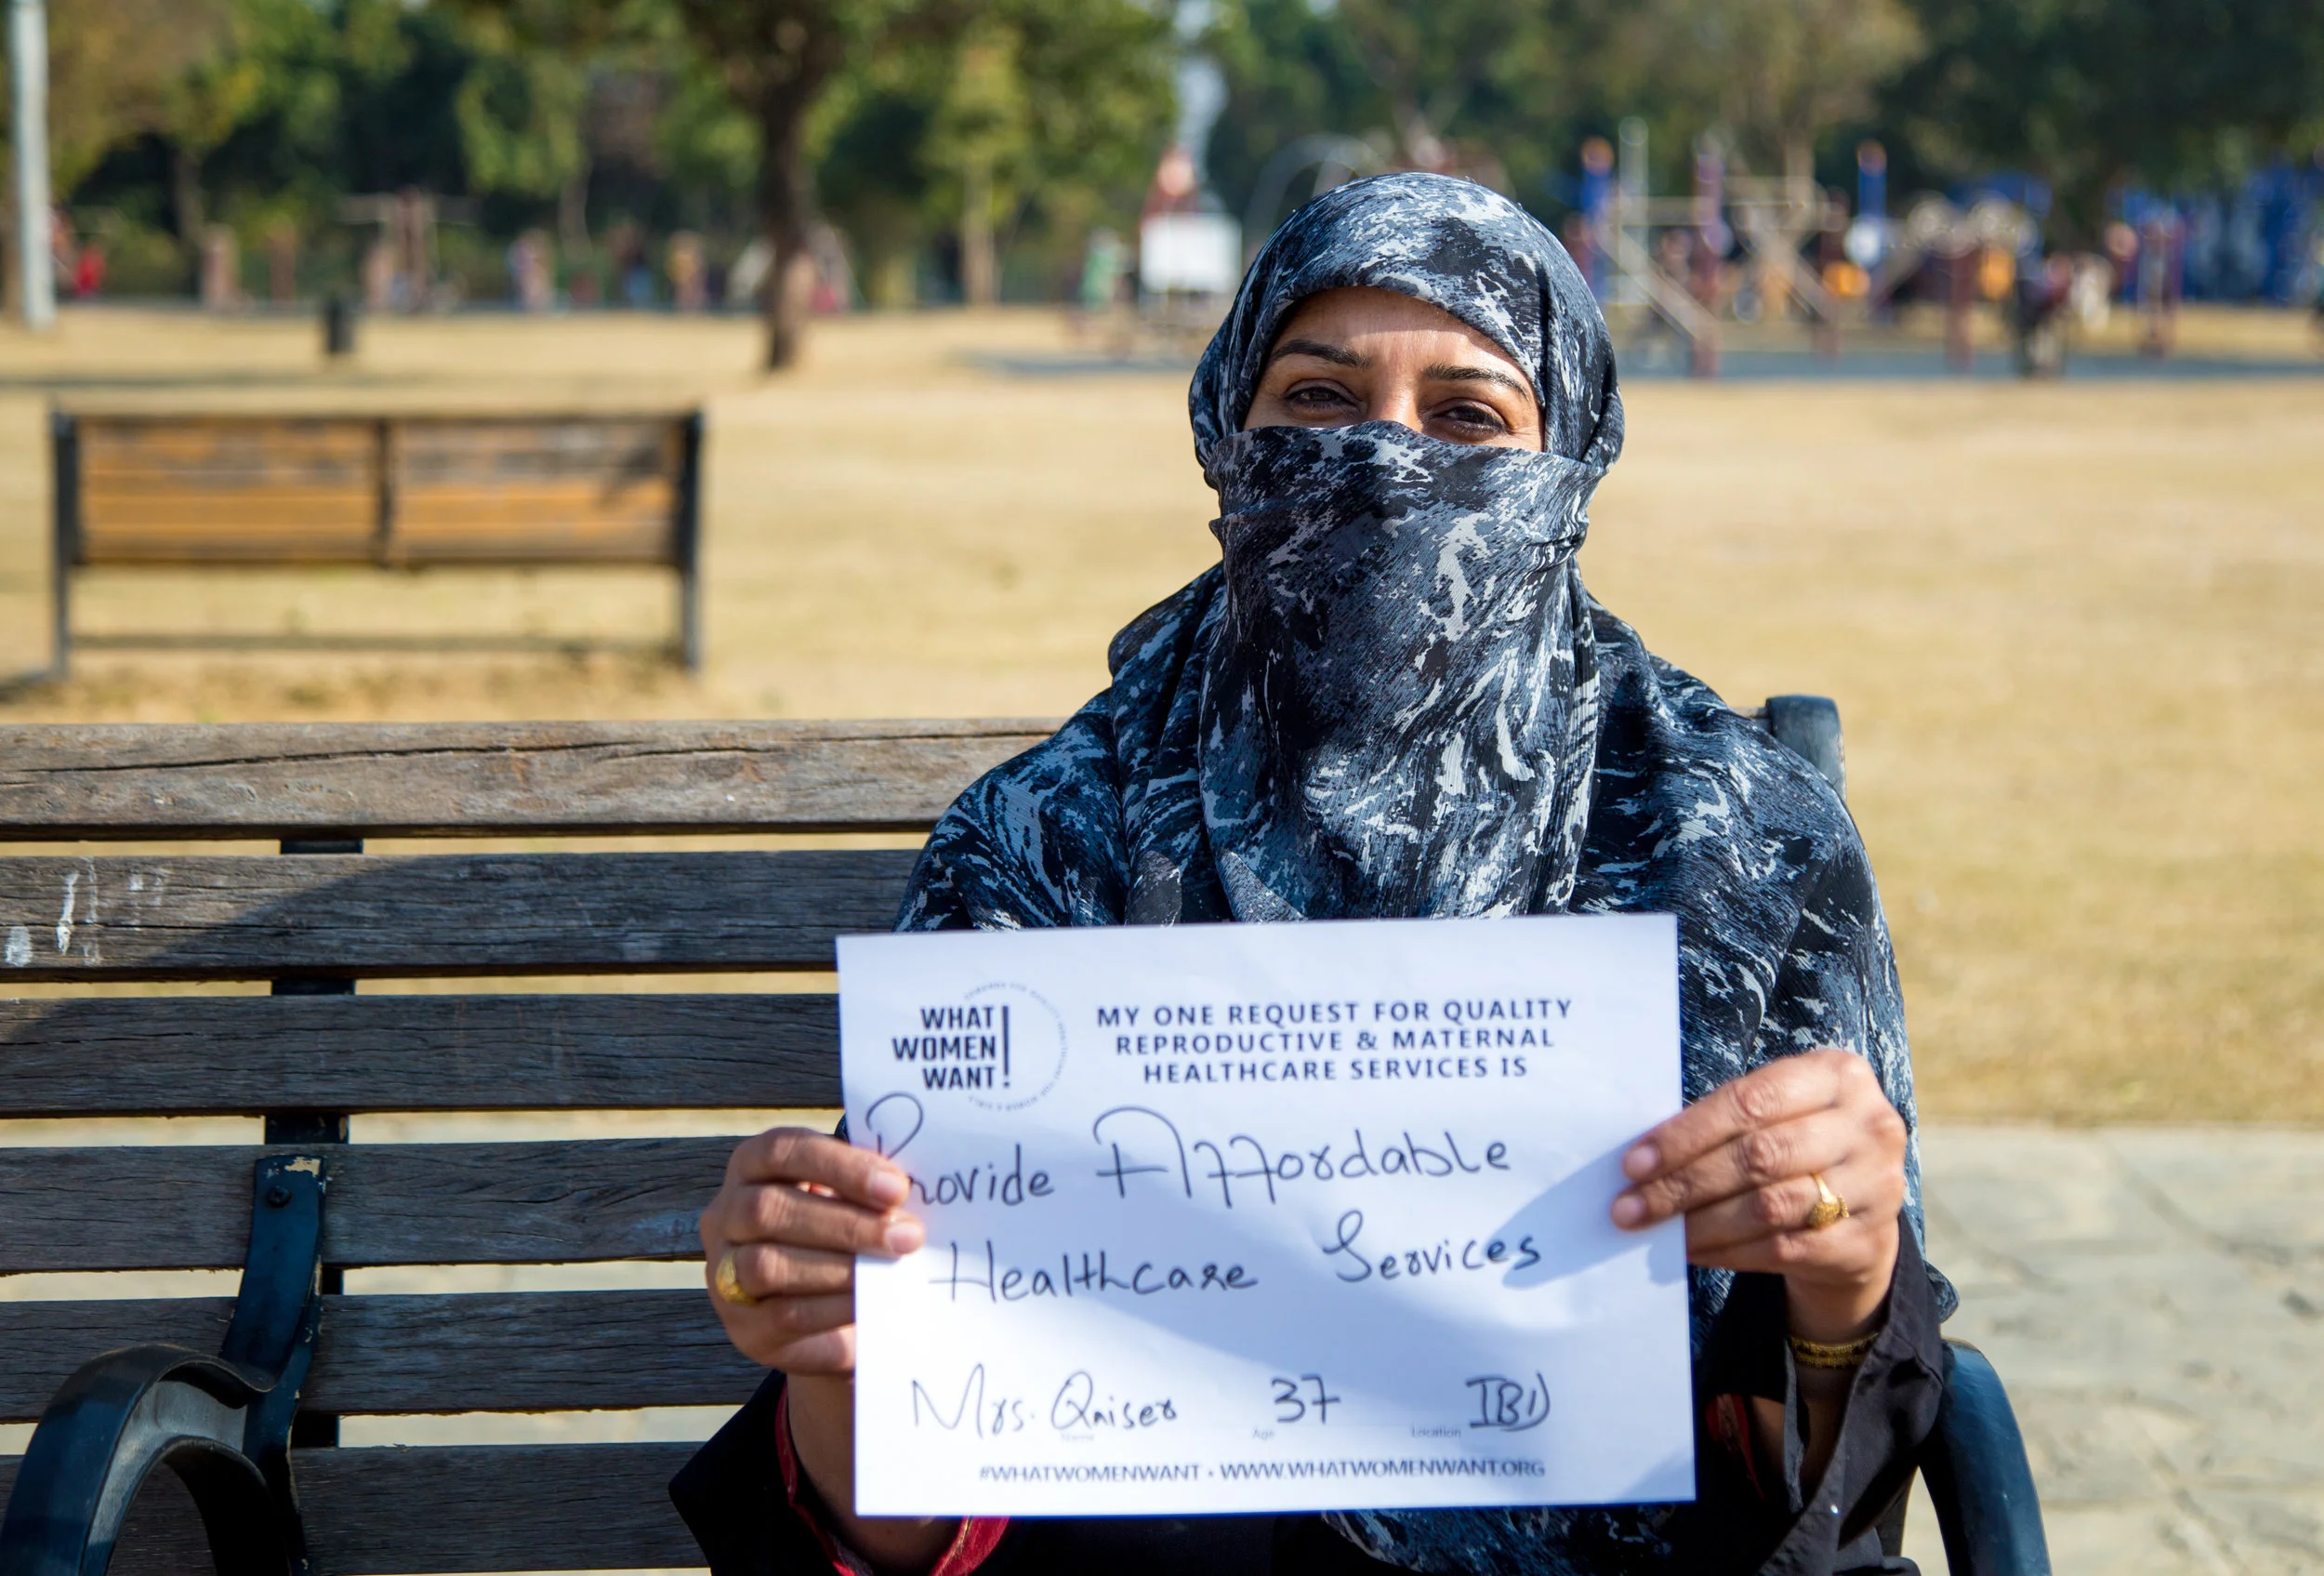 WHAT
WOMEN
WANT!
MY ONE REQUEST FOR QUALITY
REPRODUCTIVE & MATERNAL
HEALTHCARE SERVICES IS
Provide Affordable
Healthcare Services
Mrs. Qaiser 37 IBD
Name Age Location
#WHATWOMENWANT • WWW.WHATWOMENWANT.ORG